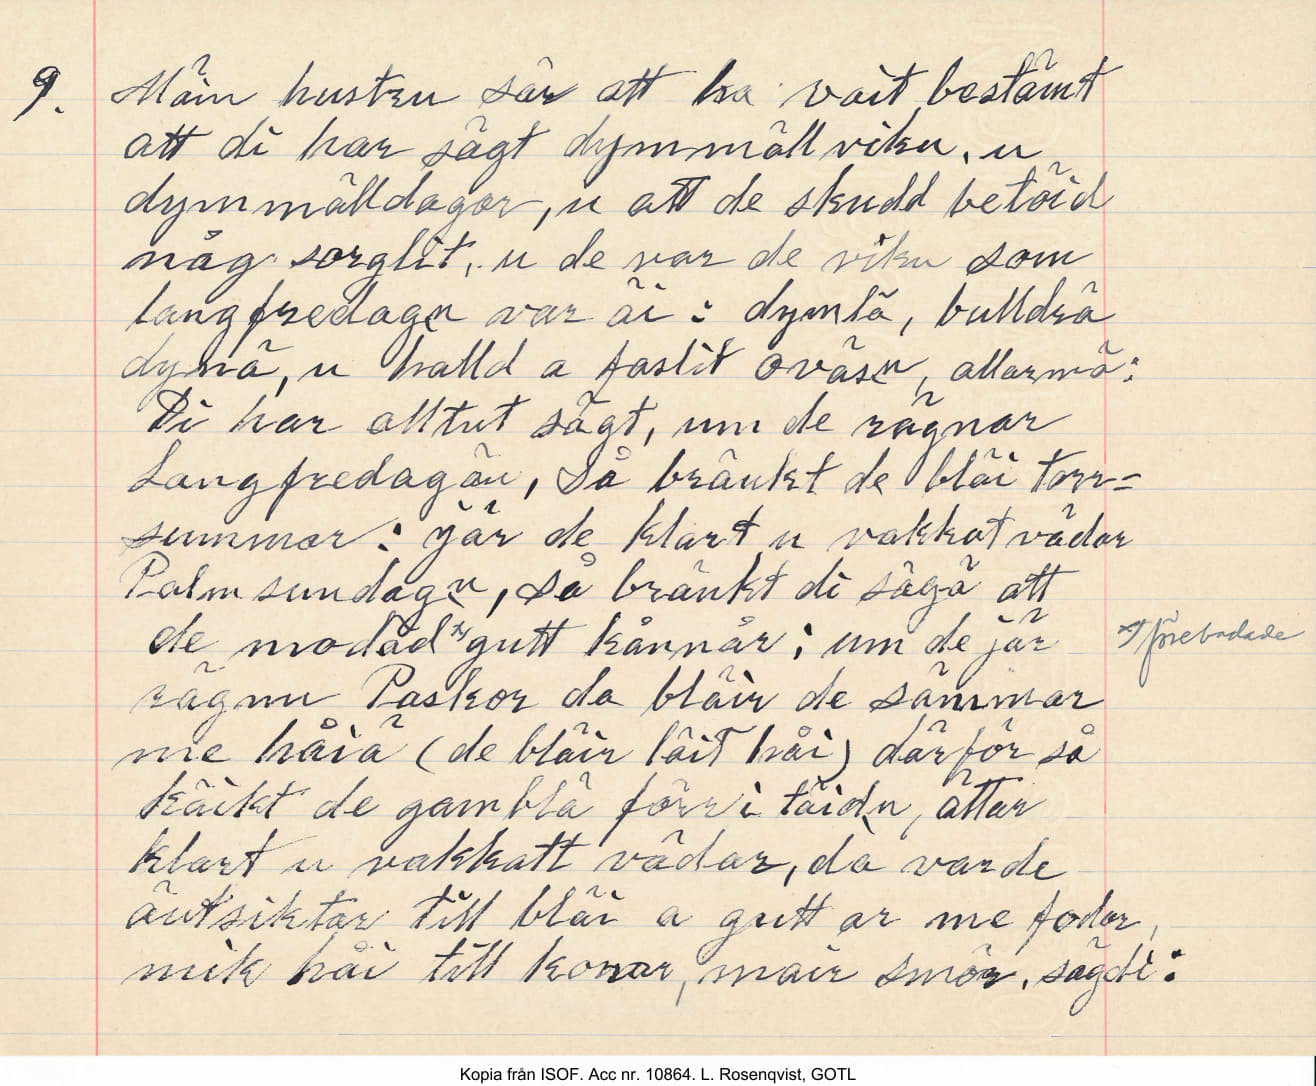 9. Mäin hustru sär att ha vait bestämt
att di har sägt dymmällviku, u
dymmälldagar, u att de skudd betöid
någ sorglit, u de var de viku som
langfredagn var äi: dymlä, bulldrä
dynä, u halld a faslit oväsn, allarmä:
Di har alltut sägt, um de rägnar
Langfredagän, så bräukt de bläi torr=
summar: jär de klart u vakkat vädar
Palmsundagn, så bräukt di sägä att
de modäd x) gutt kånnår; um de jär
x) förebådade
rägnu Paskor da bläir de sämmar
me håiä (de bläir läit håi) därför så
käikt de gamblä förr i täidn, ättar
klart u vakkatt vädar, da var de
äutsiktar till bläi a gutt ar me fodar,
mik håi till konar, mair smör. säg di:
Kopia från ISOF. Acc nr. 10864. L. Rosenqvist, GOTL